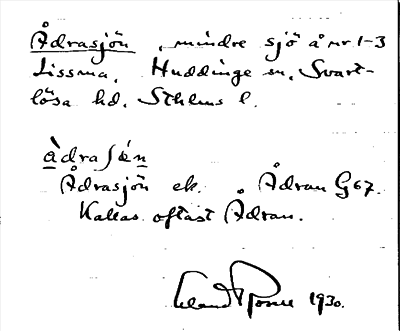 Ådrasjön, mindre sjö å nr 1-3
Lissma, Huddinge sn, Svart-
lösa hd, Sthlms l.
àdraʃǿn
Ådrasjön ek. Ådran G67.
Kallas oftast Ådran.
1930.